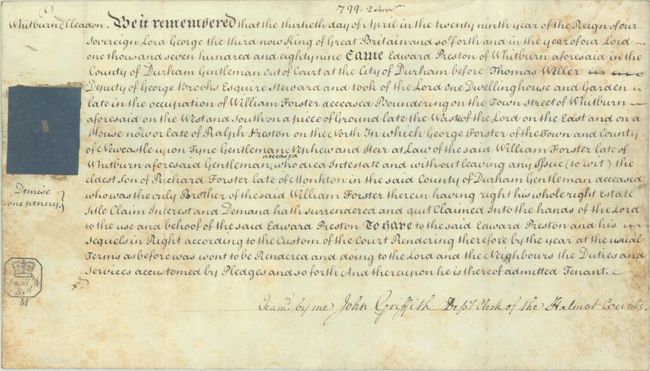 Whitburn & Cleadon. Be it remembered that the thirtieth day of April in the twenty ninth year of the Reign of our
Sovereign Lord George the third now King of Great Britain and so forth and in the year of our Lord
one thousand seven hundred and eighty nine Came Edward Preston of Whitburn aforesaid in the
County of Durham Gentleman out of Court at the City of Durham before Thomas Weller
Deputy of George Brooks Esquire Steward and took of the Lord one Dwellinghouse and Garden
late in the occupation of William Forster deceased Boundering on the Town street of Whitburn
aforesaid on the West and South on a piece of Ground late the Waste of the Lord on the East and on a
House now or late of Ralph Preston on the North In which George Forster of the Town and County
of Newcastle upon Tyne Gentleman Nephew and Heir at Law of the said William Forster late of
Whitburn aforesaid Gentleman deceased who died Intestate and without leaving any Issue (to wit) the
eldest Son of Richard Forster late of Monkton in the said County of Durham Gentleman deceased
who was the only Brother of the said William Forster therein having right his whole right Estate
title Claim Interest and Demand hath surrendered and quit Claimed Into the hands of the Lord
to the use and behoof of the said Edward Preston To Have to the said Edward Preston and his
Sequels in Right according to the Custom of the Court Rendering therefore by the year at the usual
Terms as before was wont to be Rendered and doing to the Lord and the Neighbours the Duties and
Services accustomed by Pledges and so forth And thereupon he is thereof admitted Tenant.
Demise
one penny
M
Exam'd. by me John Griffith Dep'y Clerk of the Halmot Courts.